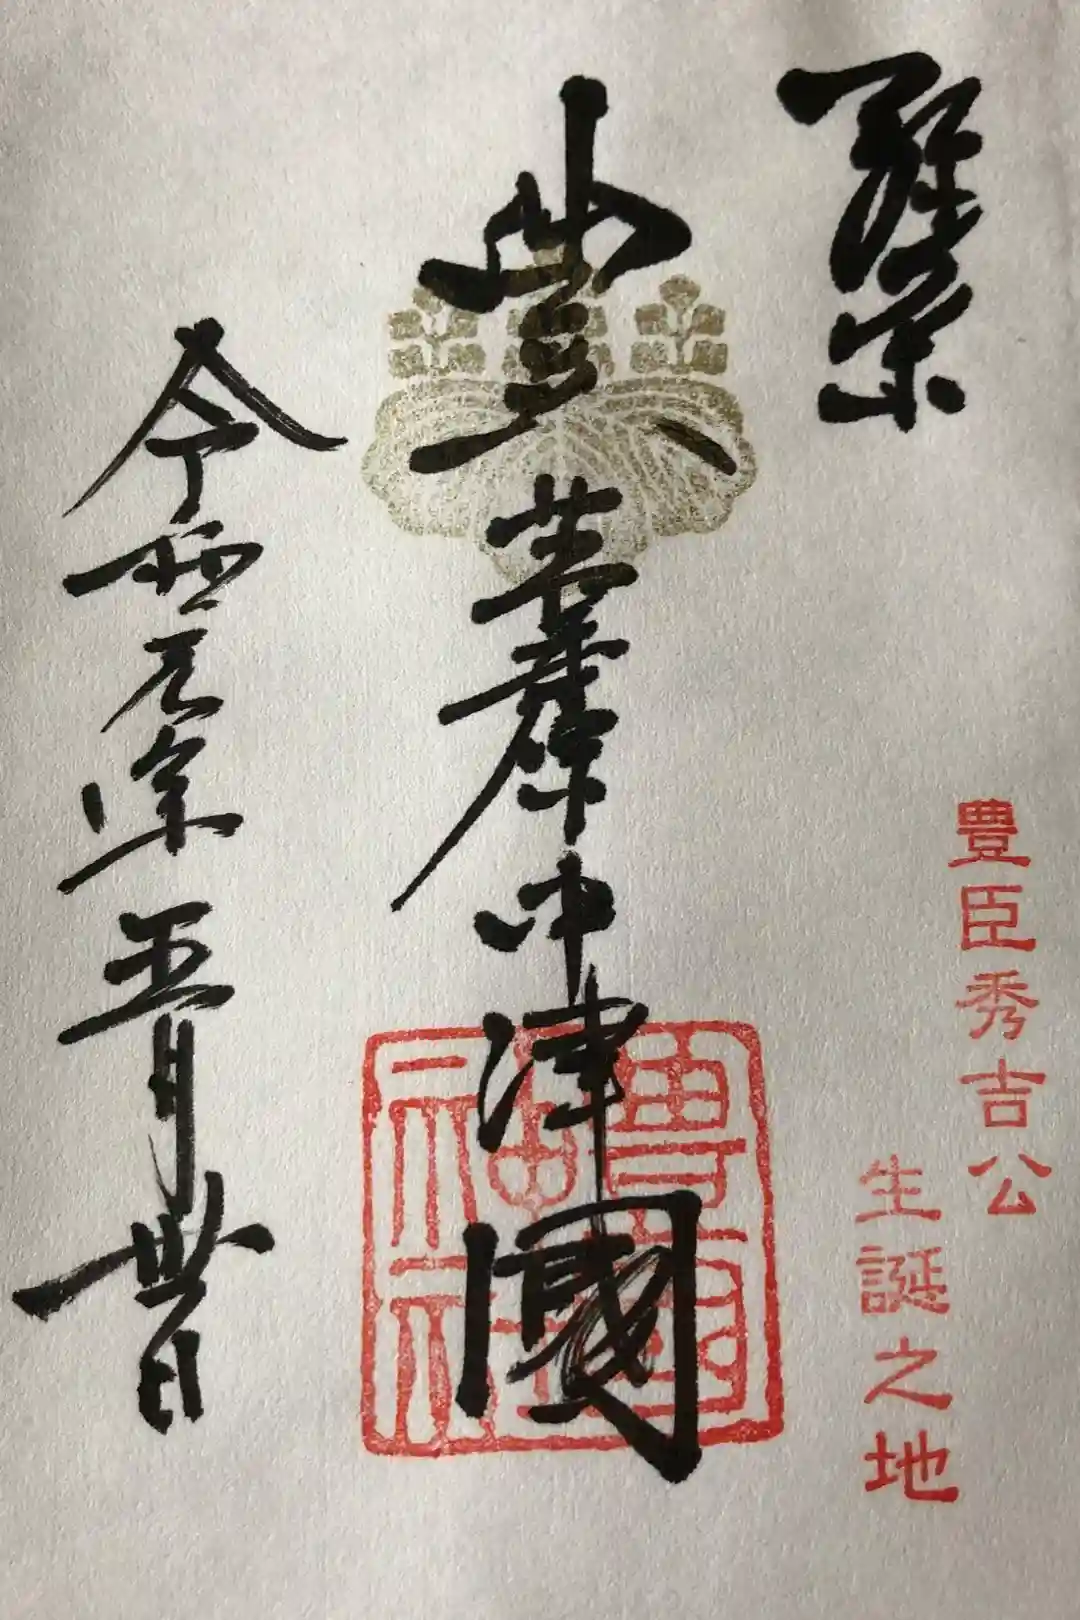 豊臣秀吉公
生誕之地
豊葦原中津國
令和元年五月丗日
豊國
神社